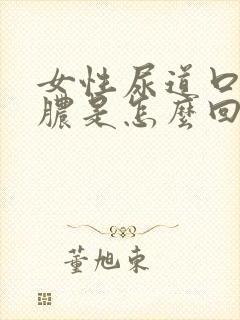 女性尿道口
膿是怎麼回
董旭東